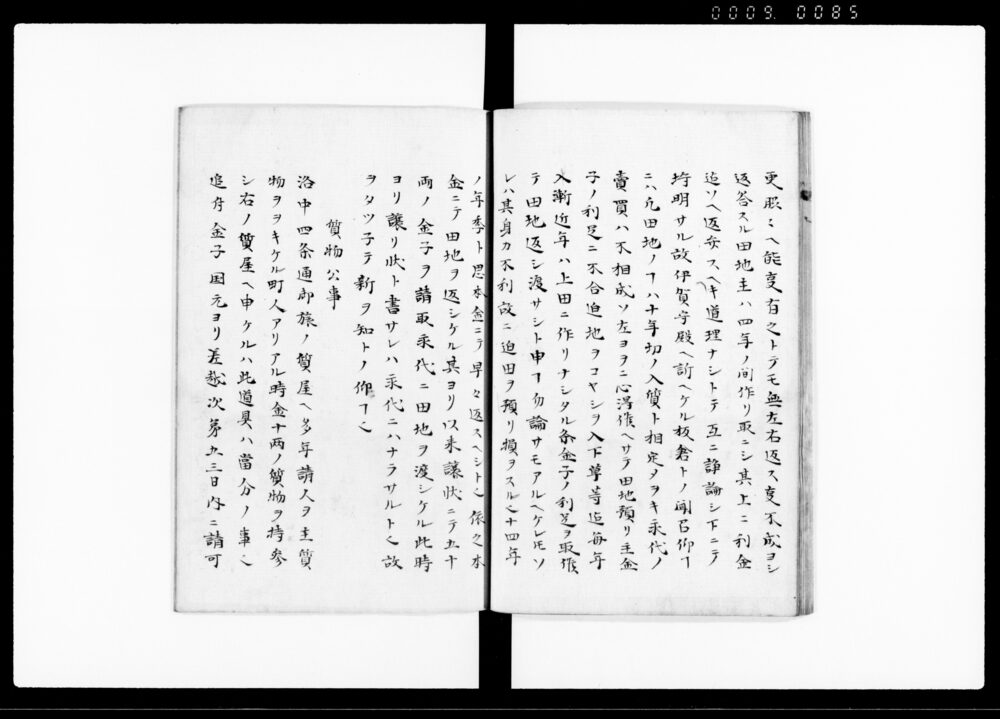 0009. 0085
更眼ミヘ能変有之トテモ無左右返ス変不成ヨシ
返答スル田地主ハ四年ノ間作リ取ニシ其上ニ利金
迄ソヘ返弁スヘキ道理ナシトテ互ニ諍論シ下ニテ
埒明サル故伊賀守殿ヘ訴ヘケル板倉トノ聞召仰ヿ
ニハ凡田地ノヿハ十年切ノ入質ト相定ヲヲキ永代ノ
賣買ハ不相成ソ左ヨヲ心得作ヘサテ田地預リ主金
子ノ利足ニ不合迫地ヲコヤシヲ入下草等迄毎年
入漸近年ハ上田ニ作リナシタル条金子ノ利足ヲ取作
テ田地返シ渡サシト申ヿ勿論サモアルヘケレトモソ
レハ其身カ不利故ニ迫田ヲ預リ損ヲスル也十四年
ノ年季ト思本金ニテ早々返スヘシト也依之本
金ニテ田地ヲ返シケル其ヨリ以来譲状ニテ五十
両ノ金子ヲ請取永代ニ田地ヲ渡シケル此時
ヨリ譲リ状ト書サレハ永代ニハナラサルト也故
ヲタツ子テ新ヲ知トノ仰ヿ也
質物公事
洛中四条通御旅ノ質屋ヘ多年請人ヲ主質
物ヲヲキケル町人アリアル時金十両ノ質物ヲ持参
シ右ノ質屋ヘ申ケルハ此道具ハ當分ノ事也
追付金子国元ヨリ差越次第五三日内ニ請可